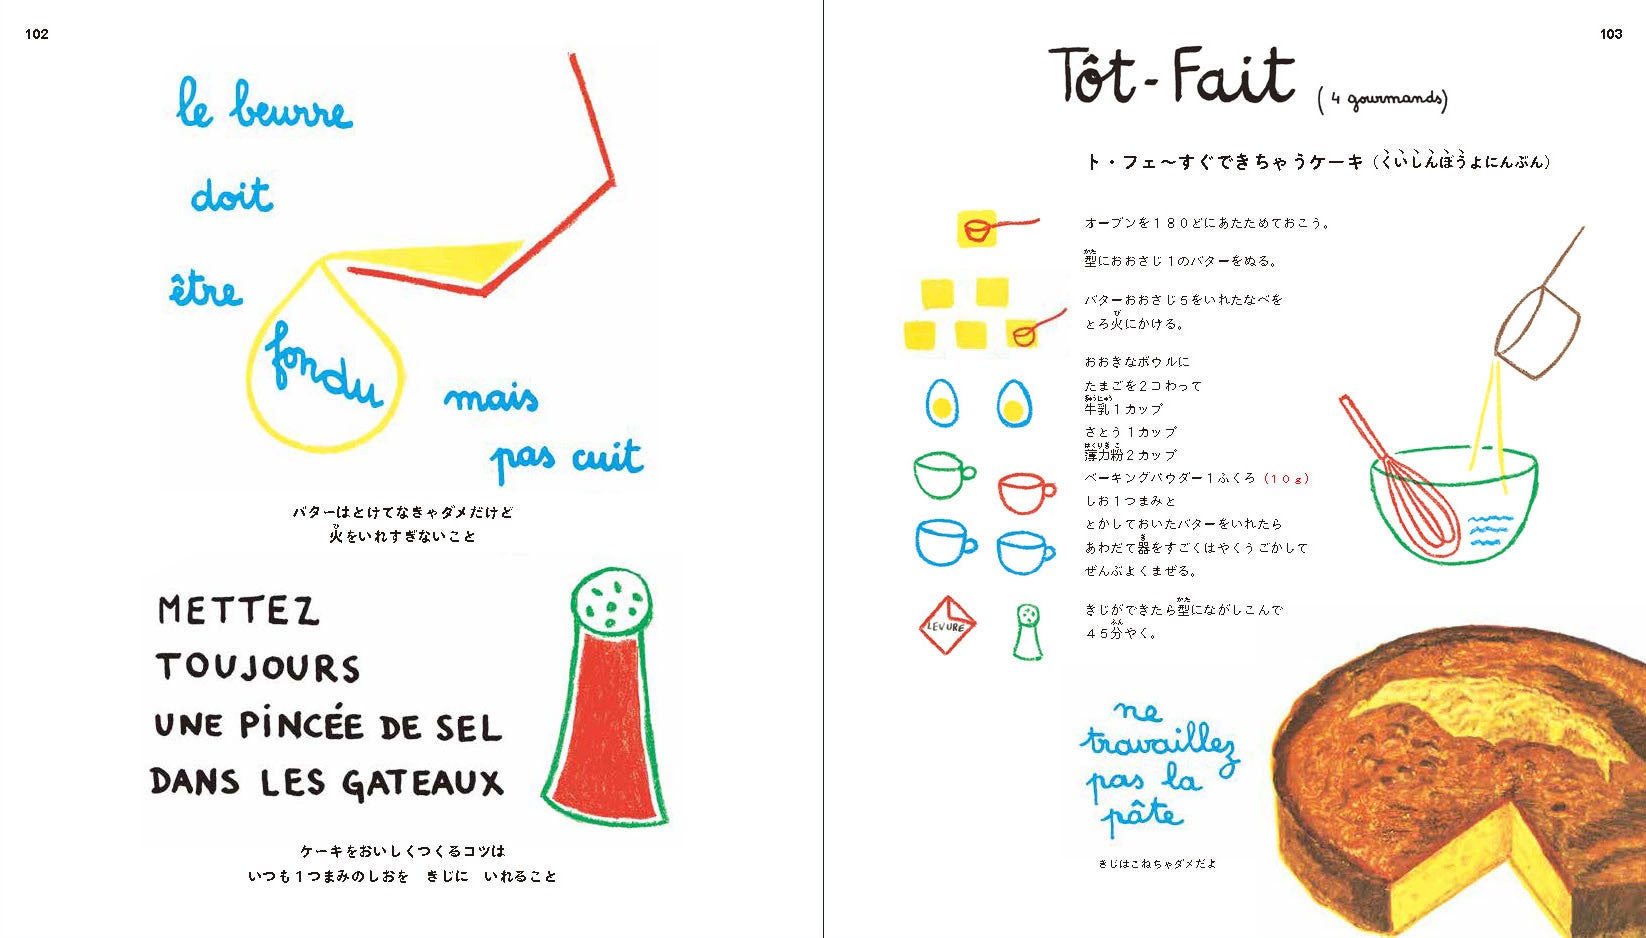 102
le beurre
doit
être
fondu
mais
pas cuit
バターはとけてなきゃダメだけど
火をいれすぎないこと
METTEZ
TOUJOURS
UNE PINCÉE DE SEL
DANS LES GATEAUX
ケーキをおいしくつくるコツは
いつも1つまみのしおを きじに いれること
103
Tôt-Fait (4 gourmands)
ト・フェ〜すぐできちゃうケーキ（くいしんぼうよにんぶん）
オーブンを180どにあたためておこう。
型におおさじ1のバターをぬる。
バターおおさじ5をいれたなべを
とろ火にかける。
おおきなボウルに
たまごを2コわって
牛乳1カップ
さとう1カップ
薄力粉2カップ
ベーキングパウダー1ふくろ（10g）
しお1つまみと
とかしておいたバターをいれたら
あわだて器をすごくはやくうごかして
ぜんぶよくまぜる。
LEVURE
きじができたら型にながしこんで
45分やく。
ne
travaillez
pas la
pâte
きじはこねちゃダメだよ